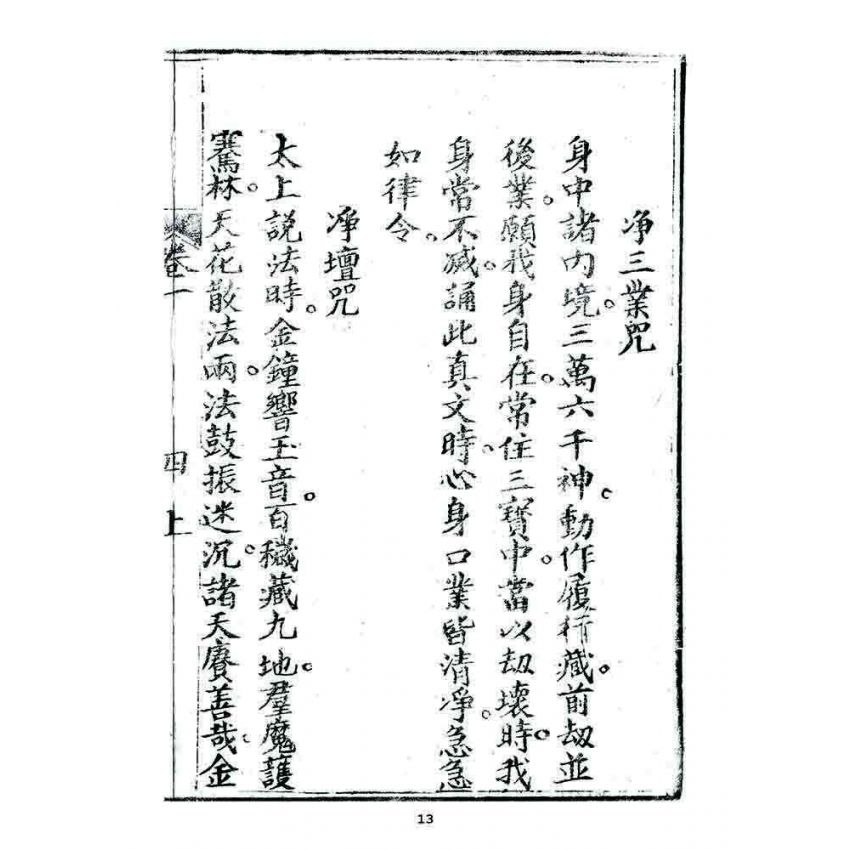 净三業咒
身中諸内境。三萬六千神。動作履行藏。前刼並
後業。願我身自在。常住三寳中。當以刼壞時。我
身常不滅。誦此真文時。心身口業皆清净。急急
如律令。
净壇咒
太上説法時。金鐘響玉音。百穢藏九地。羣魔護
騫林。天花散法雨。法鼓振迷沉。諸天賡善哉。金
卷一
四上
13